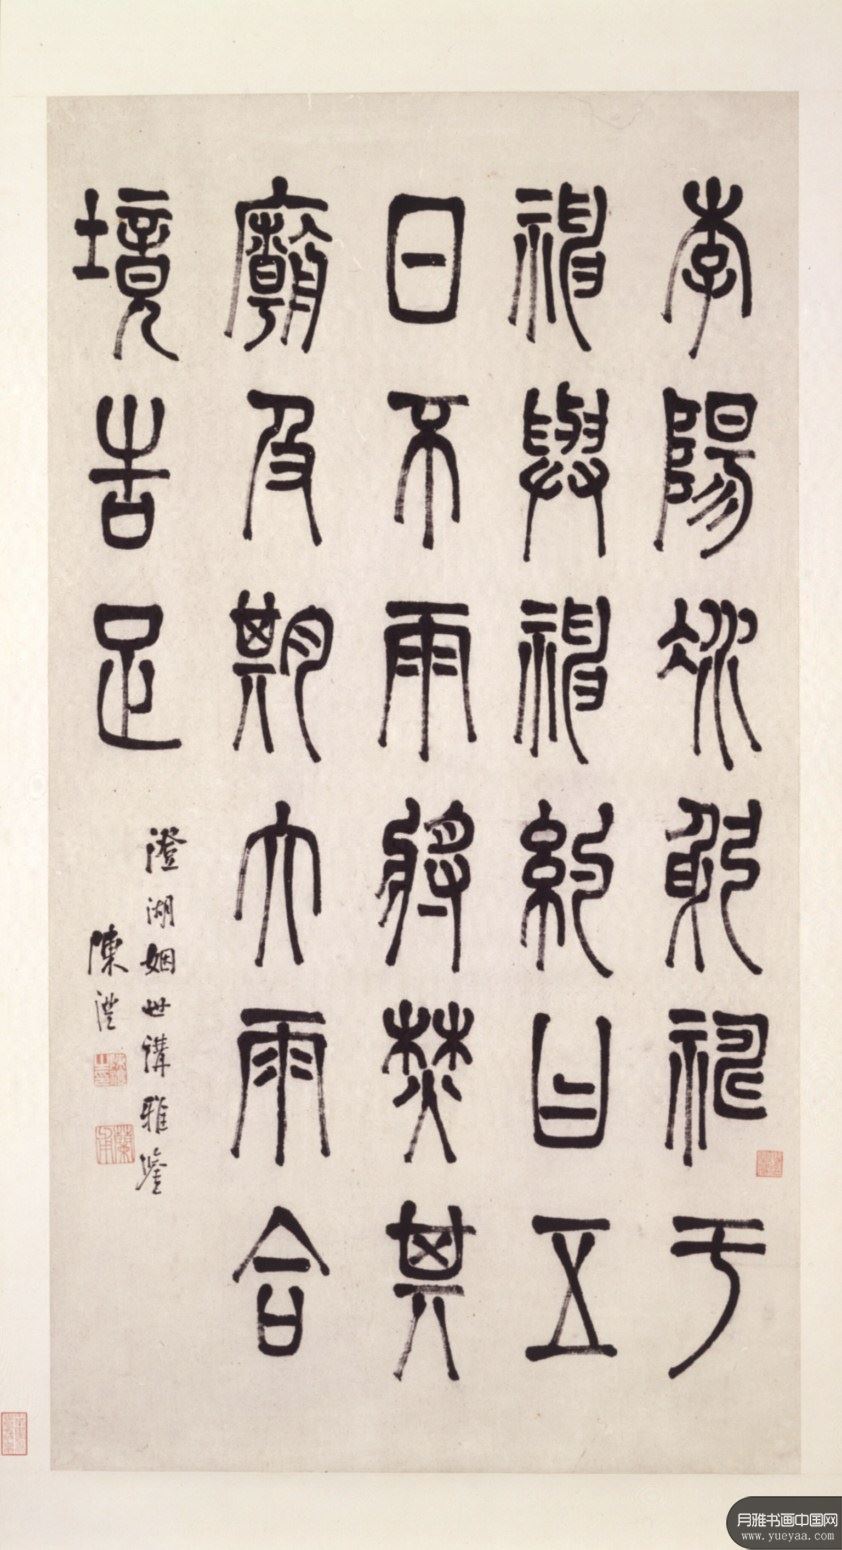 李陽冰躬祈于
神與神約曰五
日不雨將焚其
廟及期大雨合
境告足
澄湖姻世講雅鑒
陳澧
蘭甫
月雅书画中国网
www.yueyaa.com